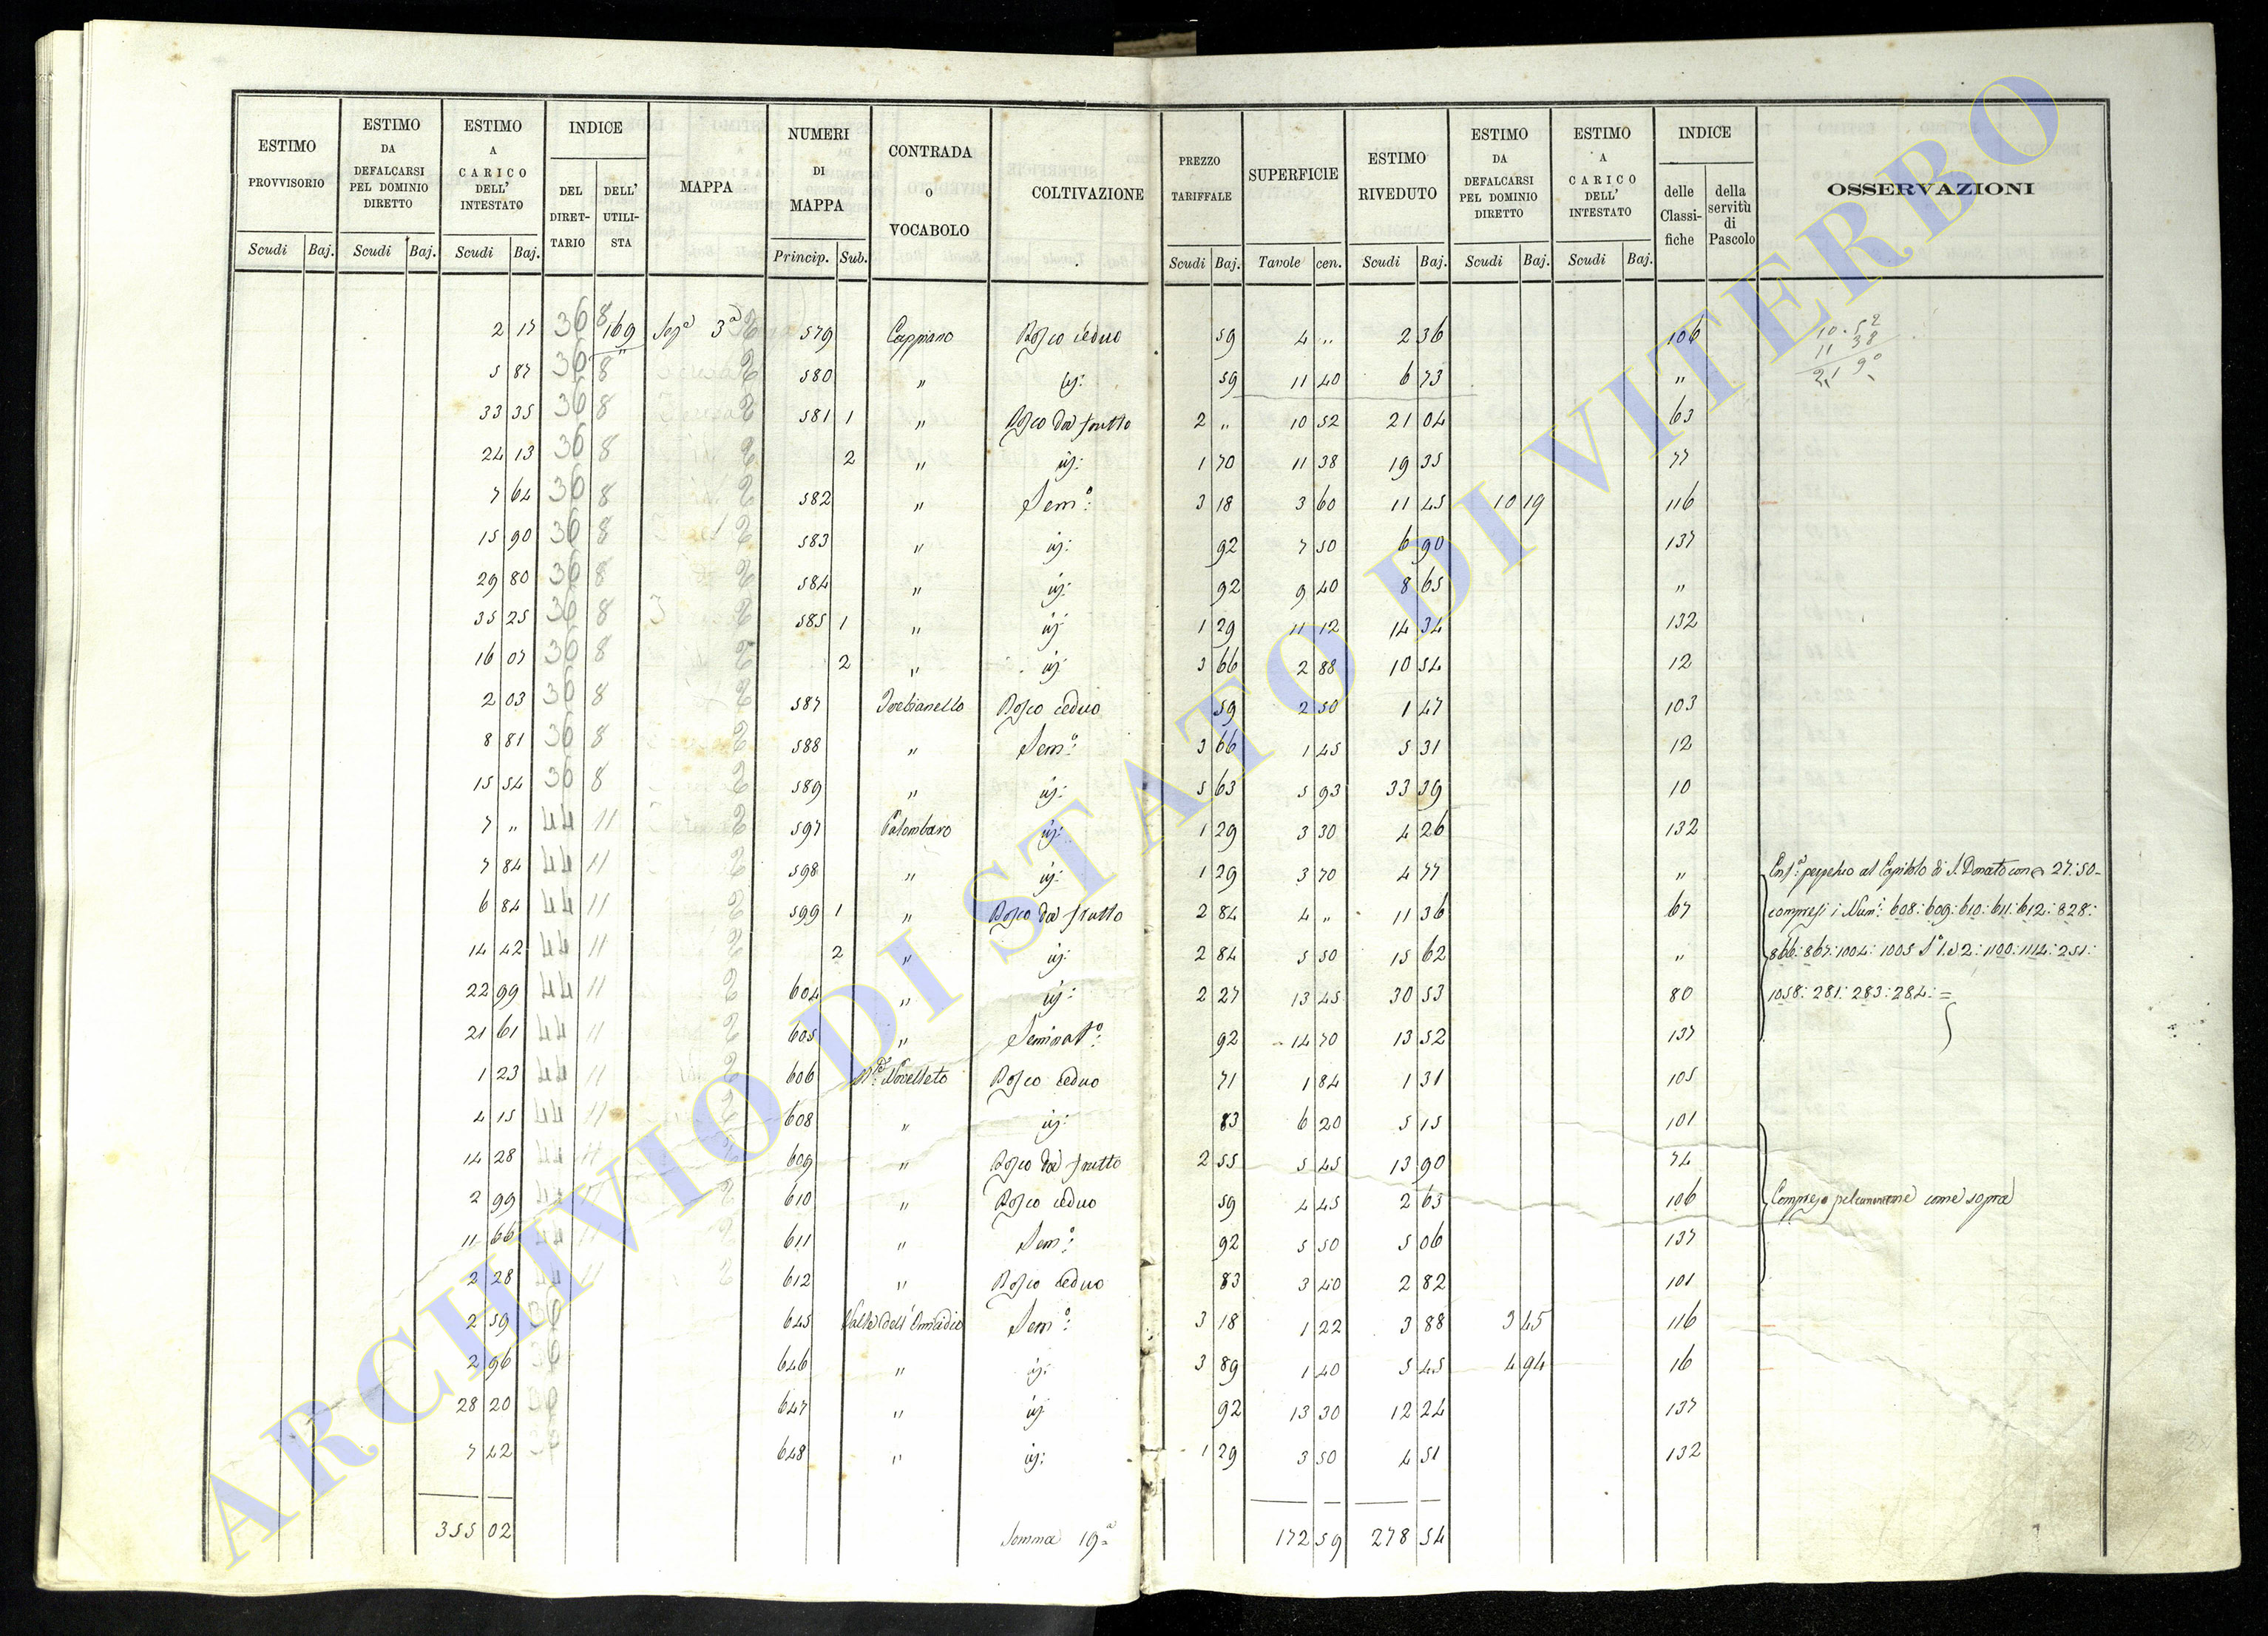 ESTIMO PROVVISORIO | ESTIMO DA DEFALCARSI PEL DOMINIO DIRETTO | ESTIMO A CARICO DELL' INTESTATO | INDICE DEL DIRETTARIO | DELL' UTILISTA | MAPPA | NUMERI DI MAPPA | CONTRADA o VOCABOLO | COLTIVAZIONE | PREZZO TARIFFALE | SUPERFICIE | ESTIMO RIVEDUTO | ESTIMO DA DEFALCARSI PEL DOMINIO DIRETTO | ESTIMO A CARICO DELL' INTESTATO | INDICE delle Classifiche | della servitù di Pascolo | OSSERVAZIONI
Scudi Baj. | Scudi Baj. | Scudi Baj. | Princip. Sub. | Scudi Baj. | Tavole cen. | Scudi Baj. | Scudi Baj. | Scudi Baj.
2 17 36 8 169 Sez.e 3a 2 579 Cappiano Bosco ceduo 59 4 " 2 36 106
5 87 36 8 2 580 " id: 59 11 40 6 73 "
33 35 36 8 2 581 1 " Bosco da frutto 2 " 10 52 21 04 63
24 13 36 8 2 2 " id: 1 70 11 38 19 35 77
7 64 36 8 2 582 " Sem.o 3 18 3 60 11 45 10 19 116
15 90 36 8 2 583 " id: 92 7 50 6 90 137
29 80 36 8 2 584 " id: 92 9 40 8 65 "
35 25 36 8 2 585 1 " id: 1 29 11 12 14 34 132
16 07 36 8 2 2 " id: 3 66 2 88 10 54 12
2 03 36 8 2 587 Trebianello Bosco ceduo 59 2 50 1 47 103
8 81 36 8 2 588 " Sem.o 3 66 1 45 5 31 12
15 54 36 8 2 589 " id: 5 63 5 93 33 39 10
7 " 44 11 2 597 Palombaro id: 1 29 3 30 4 26 132
7 84 44 11 2 598 " id: 1 29 3 70 4 77 "
6 84 44 11 2 599 1 " Bosco da frutto 2 84 4 " 11 36 67
14 42 44 11 2 2 " id: 2 84 5 50 15 62 "
22 99 44 11 2 604 " id: 2 27 13 45 30 53 80
21 61 44 11 2 605 " Seminat.o 92 14 70 13 52 137
1 23 44 11 2 606 Novelleto Bosco ceduo 71 1 84 1 31 105
4 15 44 11 2 608 " id: 83 6 20 5 15 101
14 28 44 11 2 609 " Bosco da frutto 2 55 5 45 13 90 74
2 99 44 11 2 610 " Bosco ceduo 59 4 45 2 63 106
11 66 44 11 2 611 " Sem.o 92 5 50 5 06 137
2 28 44 11 2 612 " Bosco ceduo 83 3 40 2 82 101
2 59 36 645 Valle dell' Sem.o 3 18 1 22 3 88 3 45 116
2 96 36 646 " id: 3 89 1 40 5 45 4 94 16
28 20 647 " id: 92 13 30 12 24 137
7 42 648 " id: 1 29 3 50 4 51 132
355 02 Somma 19a 172 59 278 54
10.52
11 38
21 90
Enf.a perpetua al Capitolo di S. Donato con 27:50
compresi i Num.i 608: 609: 610: 611: 612: 828:
866: 867: 1004: 1005 S.o 1. e 2: 1100: 1114: 251:
1058: 281: 283: 284: =
Compreso pel canone come sopra
ARCHIVIO DI STATO DI VITERBO